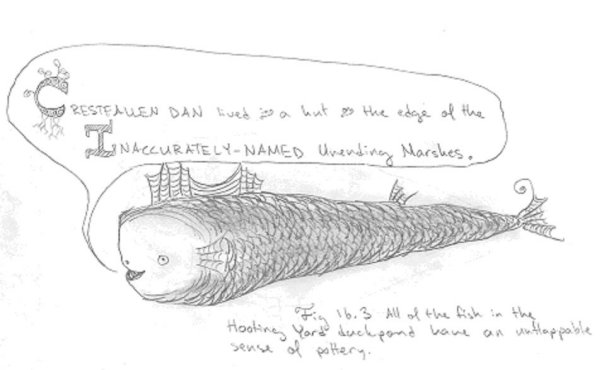 CRESTFALLEN DAN lived a hut the edge of the
INACCURATELY-NAMED Unending Marshes.
Fig 16.3 All of the fish in the
Hooting Yard duckpond have an unflappable
sense of pottery.